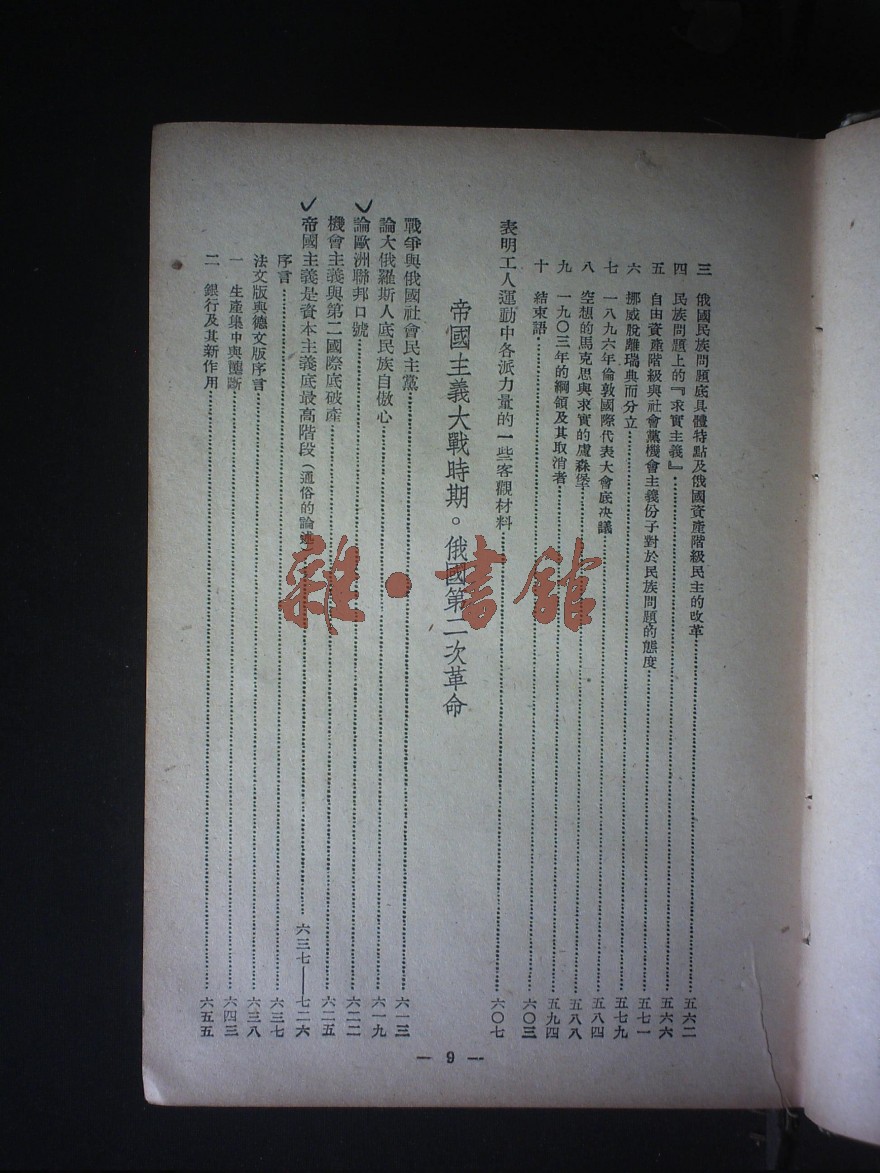 三　俄國民族問題底具體特點及俄國資產階級民主的改革……五六二
四　民族問題上的『求實主義』……五六六
五　自由資產階級與社會黨機會主義份子對於民族問題的態度……五七一
六　挪威脫離瑞典而分立……五七九
七　一八九六年倫敦國際代表大會底决議……五八四
八　空想的馬克思與求實的盧森堡……五八八
九　一九〇三年的綱領及其取消者……五九四
十　結束語……六〇三
表明工人運動中各派力量的一些客觀材料……六〇七
帝國主義大戰時期。俄國第二次革命
戰爭與俄國社會民主黨……六一三
論大俄羅斯人底民族自傲心……六一九
論歐洲聯邦口號……六二二
機會主義與第二國際底破產……六二五
帝國主義是資本主義底最高階段（通俗的論述）……六三七——七二六
序言……六三七
法文版與德文版序言……六三八
一　生產集中與壟斷……六四三
二　銀行及其新作用……六五五
— 9 —
雜·書館